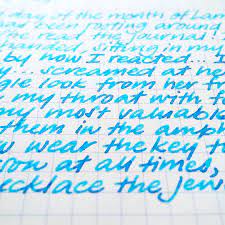 day of the month of Lam
now rooting around
the read the journal! I
handed, sitting in my
by now I reacted... I
y... screamed at he
gle look from her fr
my throat with f
my most valuable
them in the amph
w wear the key t
son at all times,
ecklace the jew